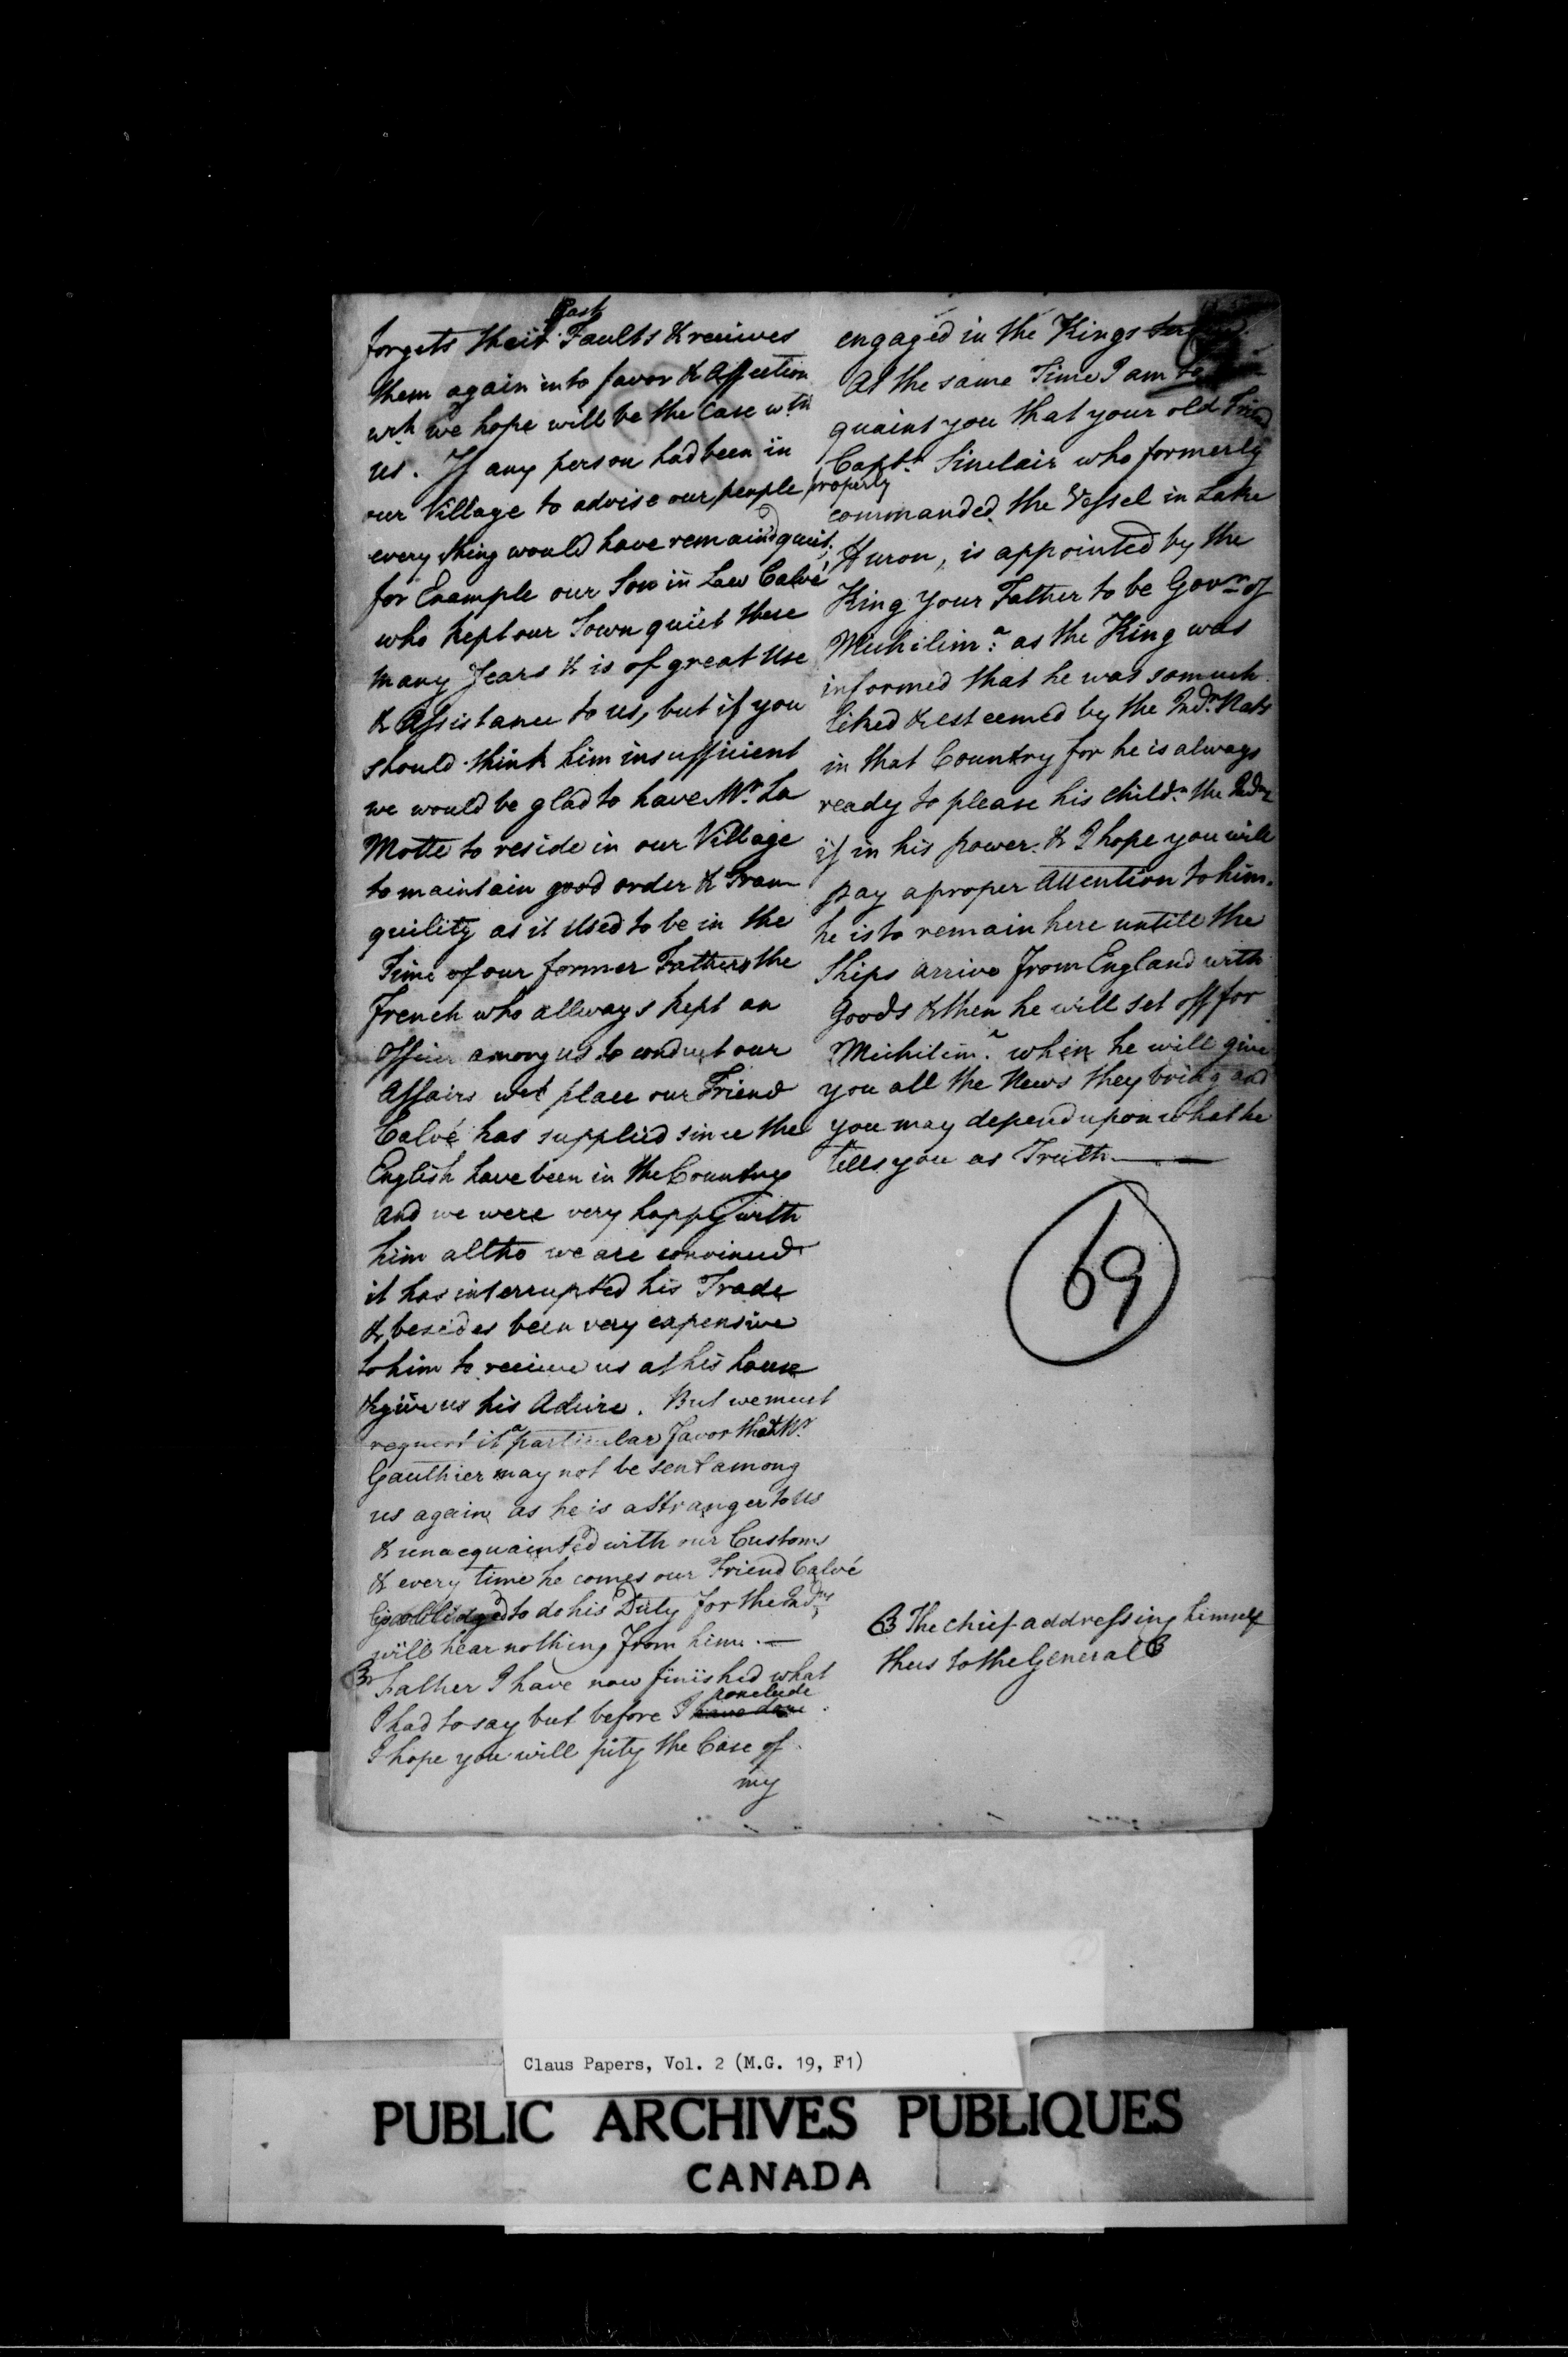 Past
forgets their Faults & receives
them again into favor & Affection
wch. we hope will be the Case wth.
us. If any person had been in
our Village to advise our people properly
every thing would have remaind quiet,
for Example our Son in Law Calvé
who kept our Town quiet these
many Years & is of great Use
& Assistance to us, but if you
should think him insufficient
we would be glad to have Mr. La
Motte to reside in our Village
to maintain good order & Tran
quility as it Used to be in the
Time of our former Fathers the
French who allways kept an
Officer among us to conduct our
Affairs wch place our Friend
Calvé has supplied since the
English have been in the Country
and we were very happy with
him altho we are convinced
it has interrupted his Trade
& besides been very expensive
to him to receive us at his house
& give us his Advice. But we must
request it a particular favor that Mr.
Gauthier may not be sent among
us again, as he is a Stranger to us
& unacquainted with our Customs
& every time he comes our Friend Calvé
is obliidged to do his Duty for the Inds.
will hear nothing from him. —
Father I have now finished what
I had to say but before I have done conclude
I hope you will pity the Case of
my
engaged in the Kings
At the same Time I am to
quaint you that your old Friend
Captn. Sinclair who formerly
commanded the Vessel in Lake
Huron, is appointed by the
King Your Father to be Govrn. of
Michilima: as the King was
informed that he was so much
liked & esteemed by the Indn. Nats
in that Country for he is always
ready to please his childn. the Indns
if in his power. & I hope you will
pay a proper Attention to him.
he is to remain here untill the
Ships arrive from England with
Goods & then he will set off for
Michilima. when he will give
you all the News they bring and
you may depend upon what he
tells you as Truth —
69
The chief addressing himself
thus to the General
Claus Papers, Vol. 2 (M.G. 19, F1)
PUBLIC ARCHIVES PUBLIQUES
CANADA